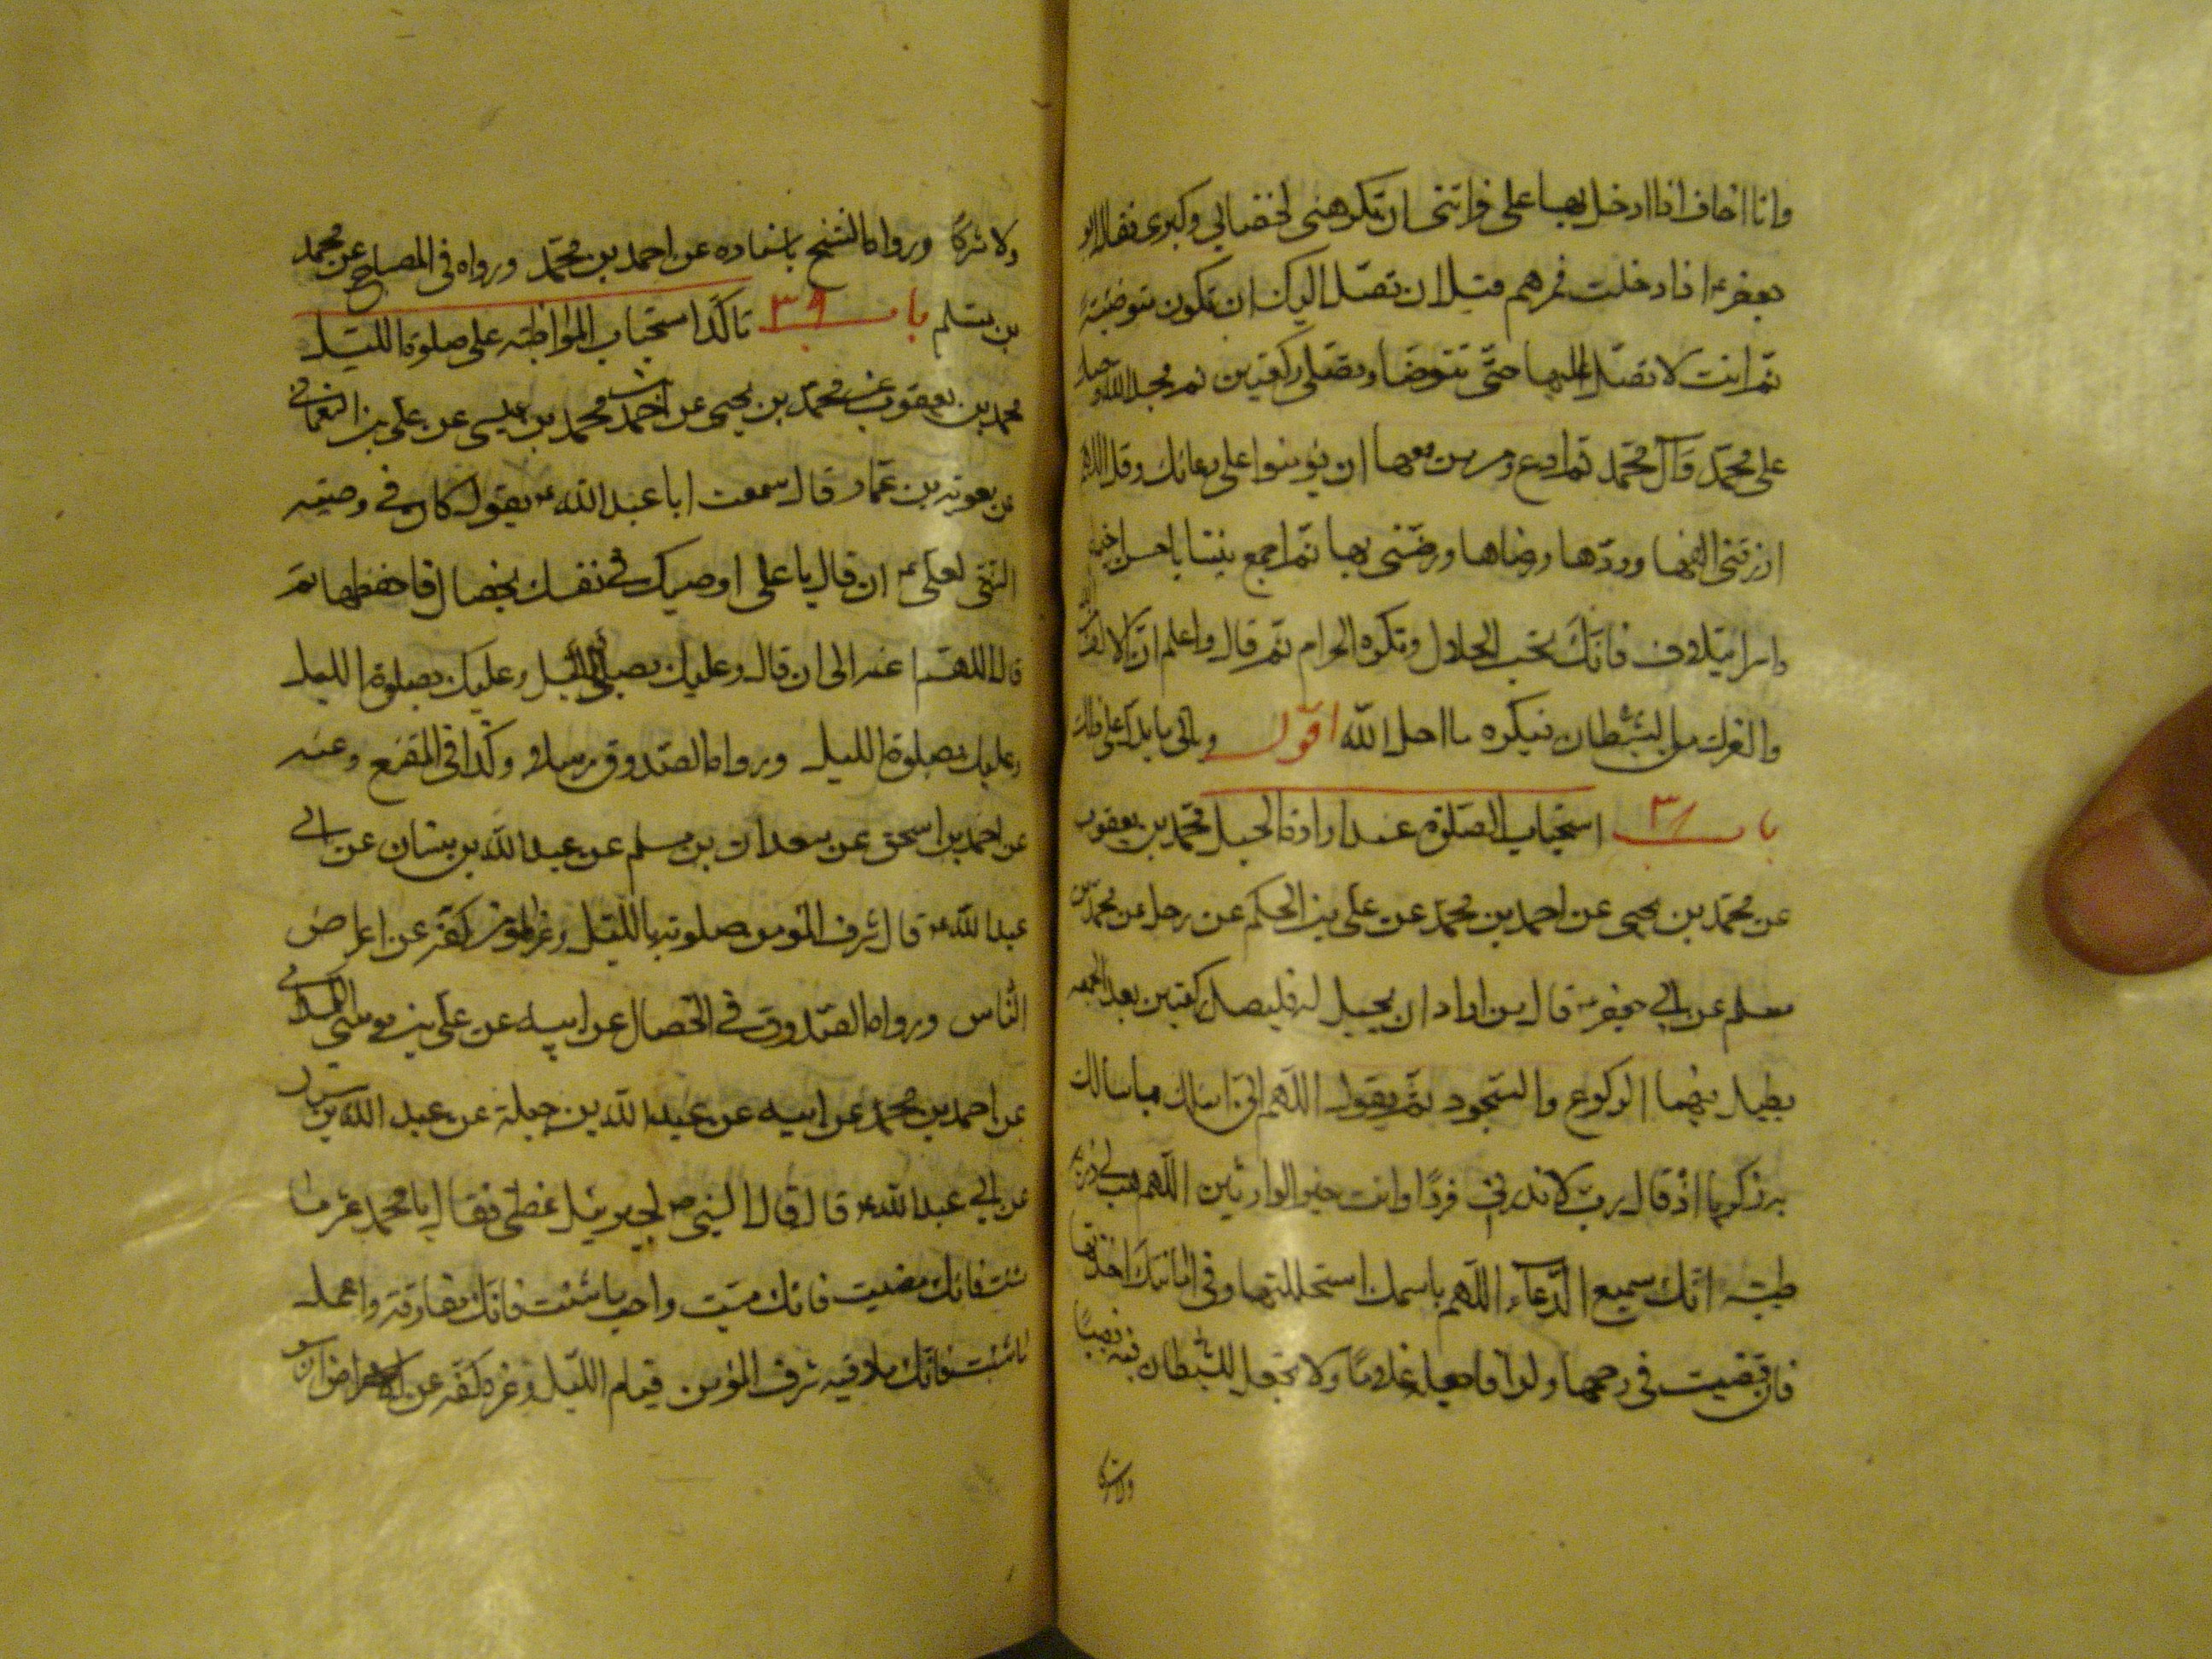 وانا اخاف اذا ادخل بها على فراشى ان تكرهنى لخضابى وكبرى فقال ابو
جعفر ع اذا دخلت فمرهم قبل ان تصل اليك ان تكون متوضئة
ثم انت لا تصل اليها حتى تتوضأ وتصلى ركعتين ثم مجد الله وصل
على محمد وآل محمد ثم ادع ومر من معها ان يؤمنوا على دعائك وقل اللهم
ارزقنى الفها وودها ورضاها ورضنى بها ثم اجمع بيننا باحسن اجتماع
واسر ايتلاف فانك تحب الحلال وتكره الحرام ثم قال واعلم ان الالف من الله
والفرك من الشيطان ليكره ما احل الله اقول وياتى ما يدل على ذلك
باب ٣٨ استحباب الصلوة عند ارادة الحبل محمد بن يعقوب
عن محمد بن يحيى عن احمد بن محمد عن على بن الحكم عن رجل عن محمد بن
مسلم عن ابى جعفر ع قال من اراد ان يحبل له فليصل ركعتين بعد الجمعة
يطيل فيهما الركوع والسجود ثم يقول اللهم انى اسالك بما سالك
به زكريا اذ قال رب لا تذرنى فردا وانت خير الوارثين اللهم هب لى ذرية
طيبة انك سميع الدعاء اللهم باسمك استحللتها وفى امانتك اخذتها
فان قضيت فى رحمها ولدا فاجعله غلاما ولا تجعل للشيطان فيه نصيبا
ولا شركا
ولا شركا ورواه الشيخ باسناده عن احمد بن محمد ورواه فى المصباح عن محمد
بن مسلم باب ٣٩ تاكد استحباب المواظبة على صلوة الليل
محمد بن يعقوب عن محمد بن يحيى عن احمد بن محمد بن عيسى عن على بن النعمان
عن معوية بن عمار قال سمعت ابا عبد الله ع يقول كان فى وصية
النبى لعلى ع ان قال يا على اوصيك فى نفسك بخصال فاحفظها ثم
قال اللهم اعنه الى ان قال وعليك بصلوة الليل وعليك بصلوة الليل
وعليك بصلوة الليل ورواه الصدوق مرسلا وكذا فى المقنع وعنه
عن احمد بن اسحق عن سعدان بن مسلم عن عبد الله بن سنان عن ابى
عبد الله ع قال شرف المؤمن صلوته بالليل وعز المؤمن كفه عن اعراض
الناس ورواه الصدوق فى الخصال عن ابيه عن على بن موسى الكمندانى
عن احمد بن محمد عن ابيه عن عبد الله بن جبلة عن عبد الله بن سنان
عن ابى عبد الله ع قال قال النبى ص لجبرئيل عظنى فقال يا محمد عش ما
شئت فانك ميت واحب ما شئت فانك مفارقه واعمل
ما شئت فانك ملاقيه شرف المؤمن قيام الليل وعزه كفه عن اعراض الناس